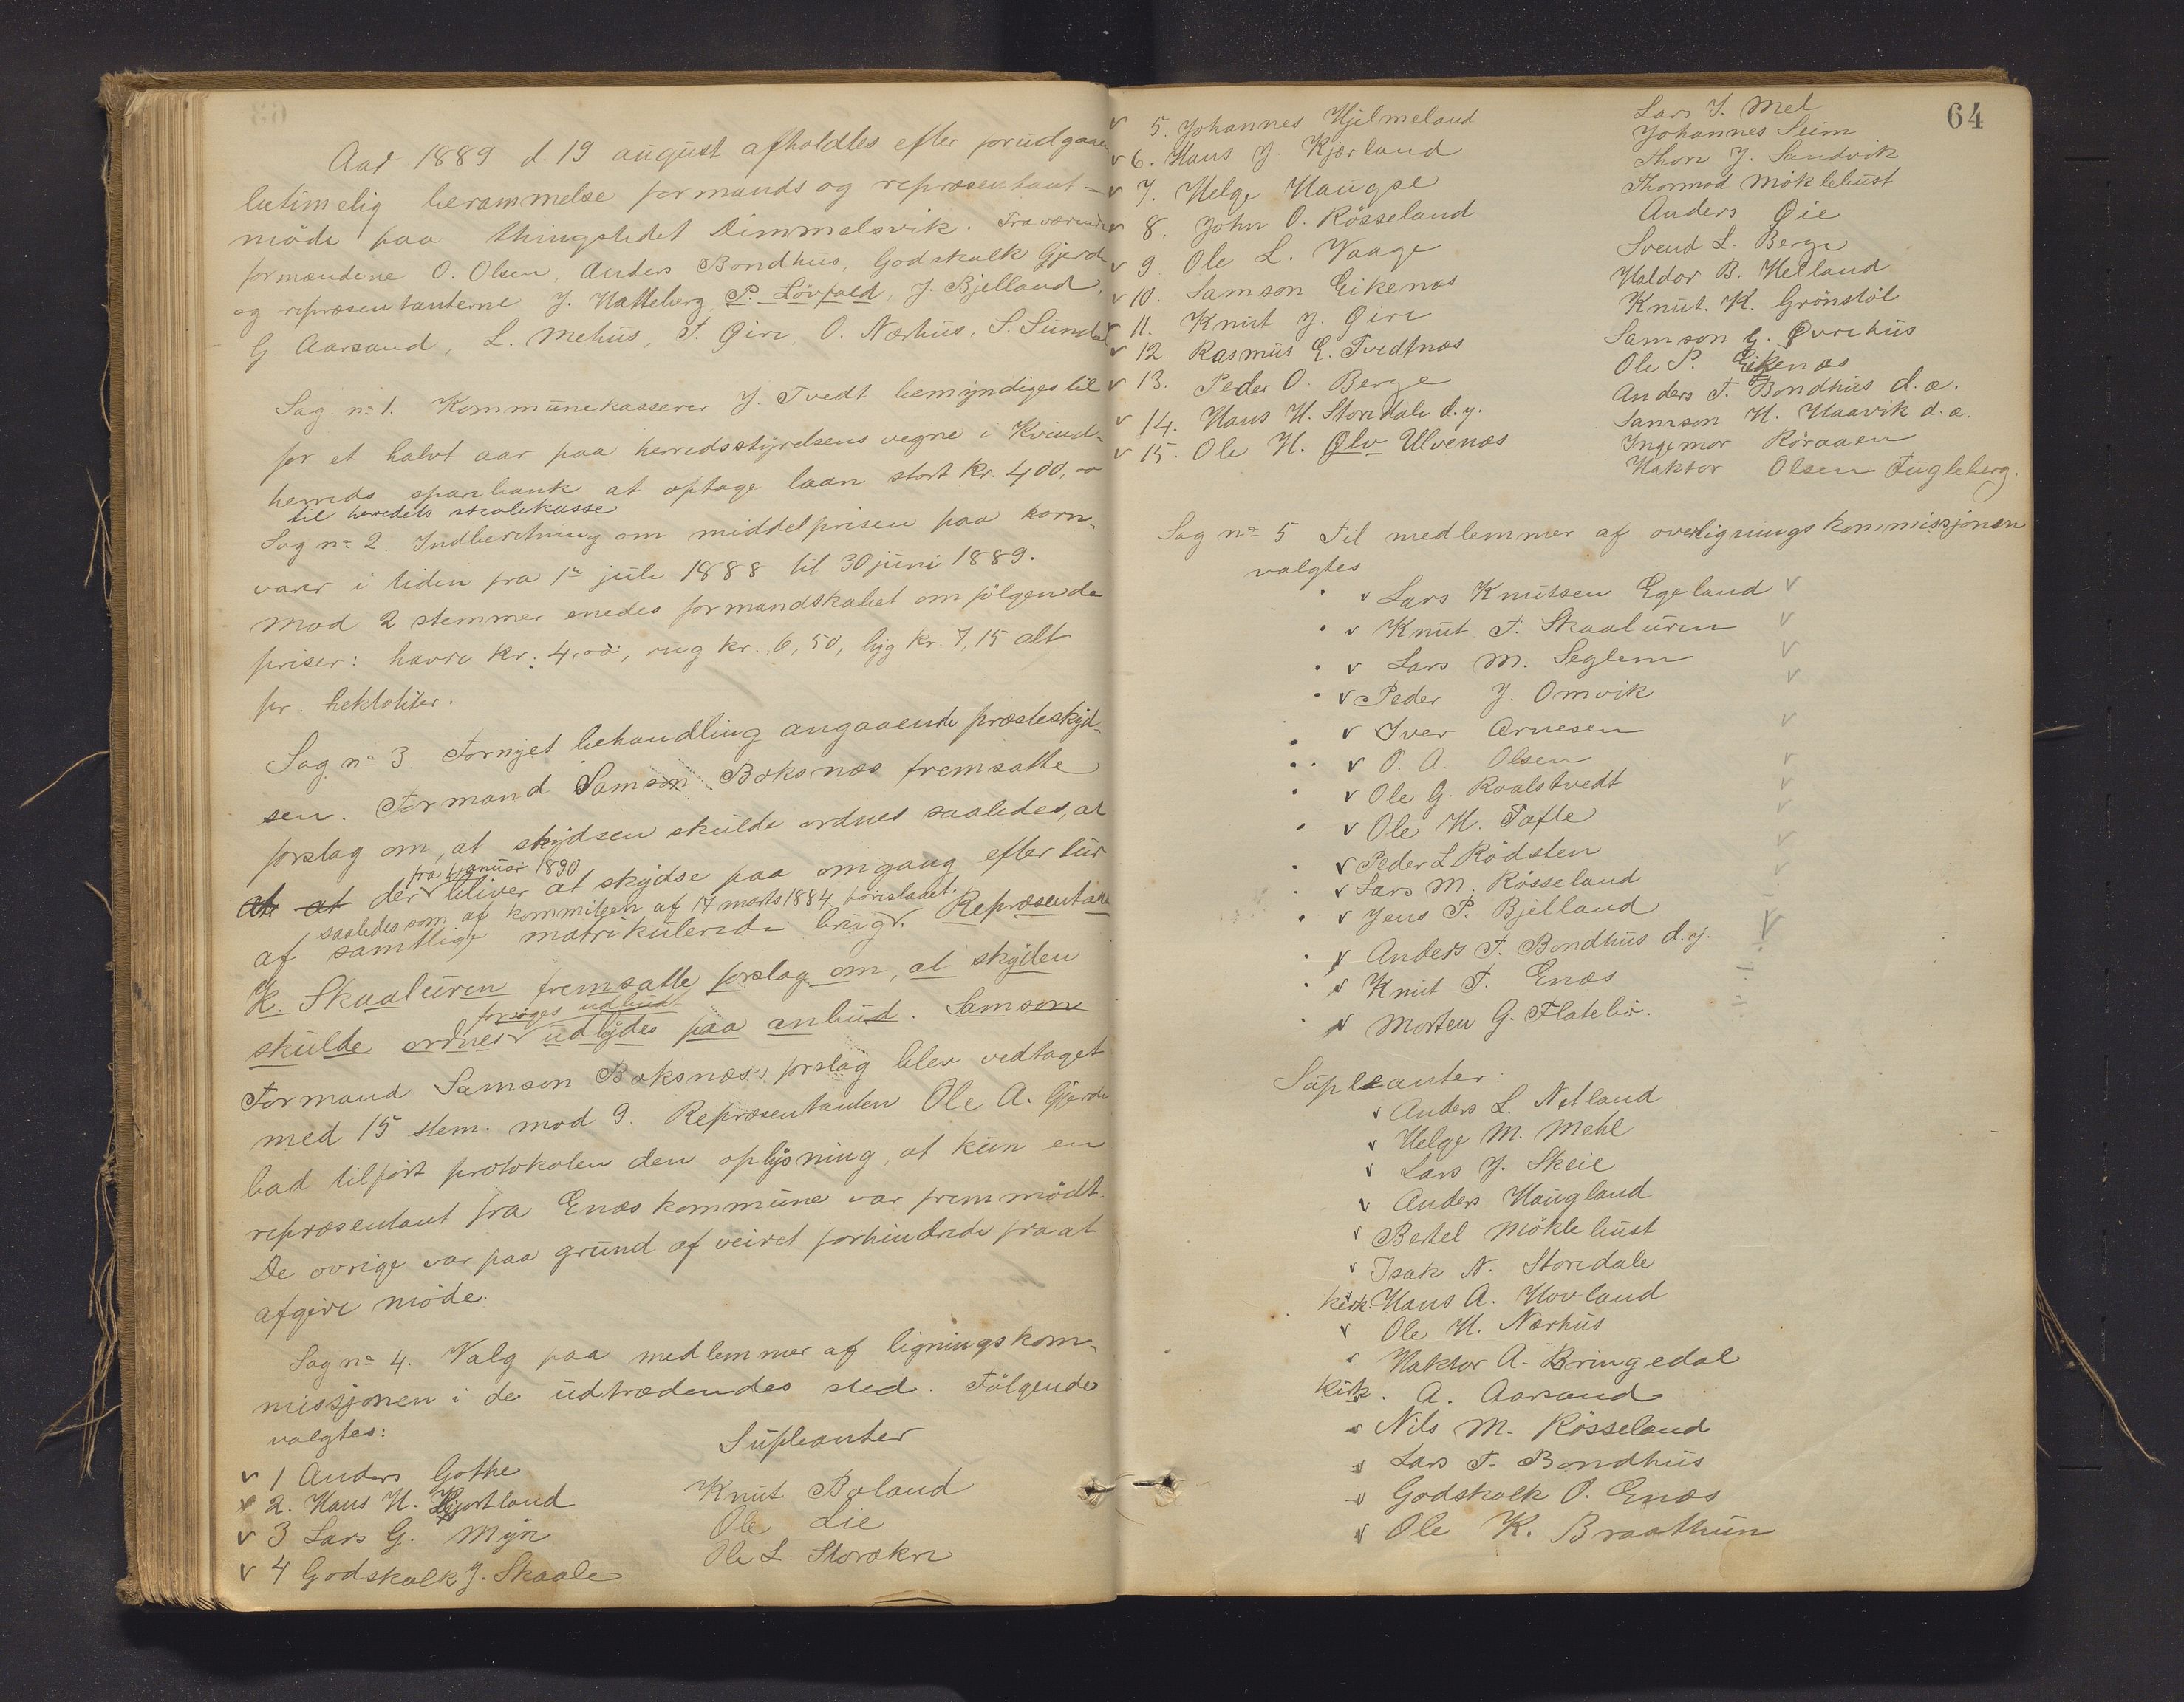 Aar 1889 d. 19 august afholdtes efter forudgaaen
betimelig berammelse formands og repræsentant-
møde paa thingstedet Dimmelsvik. Fraværende
formændene O. Olsen, Anders Bondhus, Godskalk Gjerde
og repræsentanterne J. Hatteberg, P. Løvfald, J. Bjelland,
G Aarsand, L. Mehus, T. Øire, O. Nærhus, S. Sundal
Sag n: 1. Kommunekasserer J. Tvedt bemyndiges til
for et halvt aar paa herredsstyrelsens vegne i Kvind-
herreds sparebank at optage laan stort kr. 400,00
til herredets skolekasse
Sag n: 2. Indberetning om middelprisen paa korn-
varer i tiden fra 1ste juli 1888 til 30 juni 1889.
Mod 2 stemmer enedes formandskabet om følgende
priser: havre kr. 4,00, rug kr. 6,50, byg kr. 7,15 alt
pr. hektoliter.
Sag n: 3. Fornyet behandling angaaende præsteskyd-
sen. Formand Samson Baksnæs fremsatte
forslag om, at skydsen skulde ordnes saaledes, at
fra 1 januar 1890
at der bliver at skydse paa omgang efter tur
saaledes som af kommiteen af 17 marts 1884 foreslaaet.
af samtlige matrikulerede brug. Repræsentant
K. Skaaluren fremsatte forslag om, at skyden
forsøges udbudt
skulde ordnes udbydes paa anbud. Samson
Formand Samson Baksnæs's forslag blev vedtaget
med 15 stem. mod 9. Repræsentanten Ole A. Gjerde
bad tilført protokolen den oplysning, at kun en
repræsentant fra Enæs kommune var fremmødt.
De øvrige var paa grund af veiret forhindrede fra at
afgive møde.
Sag n: 4. Valg paa medlemmer af ligningskom-
missjonen i de udtrædendes sted. Følgende
valgtes: Supleanter
v 1 Anders Gothe Knut Boland
v 2. Hans H. Hjortland Ole Lie
v 3 Lars G. Myre Ole L. Storækre
v 4 Godskalk J. Skaale
64
v 5. Johannes Hjelmeland Lars J. Mel
v 6. Hans J. Kjærland Johannes Seim
v 7. Helge Haugse Thore J. Sandvik
v 8. John O. Røsseland Thormod Møklebust
v 9 Ole L. Vaage Anders Øie
v 10. Samson Eikenæs Svend L. Berge
v 11. Knut J. Øire Haldor B. Helland
v 12. Rasmus E. Tvedtnæs Knut. K. Grønstøl
v 13. Peder O. Berge Samson G. Øvrehus
v 14. Hans H. Storedale d.y. Ole P. Eikenæs
v 15. Ole H. Ølv Ulvenæs Anders T. Bondhus d.æ.
Samson H. Haavik d.æ.
Ingemor Røraaen
Haktor Olsen Fugleberg.
Sag n: 5 Til medlemmer af overligningskommissjonen
valgtes
v Lars Knutsen Egeland v
v Knut T. Skaaluren v
v Lars M. Seglem v
v Peder J. Omvik v
v Iver Arnesen v
v O. A. Olsen v
v Ole G. Kvalstvedt v
v Ole H. Tofte v
v Peder L Rødsten v
v Lars M. Røsseland v
v Jens P. Bjelland
v Anders T. Bondhus d.y. v
v Knut T. Enæs
v Morten G. Flatebø.
Supleanter:
v Anders L. Netland
v Helge M. Mehl
v Lars J. Skeie
v Anders Haugland
v Bertel Møklebust
v Isak N. Storedale
kirk. Hans A. Hovland
v Ole H. Nærhus
v Haktor A. Bringedal
Kirk. A. Aarsand
v Nils M. Røsseland
v Lars T. Bondhus
v Godskalk O. Enæs
v Ole K. Braathun